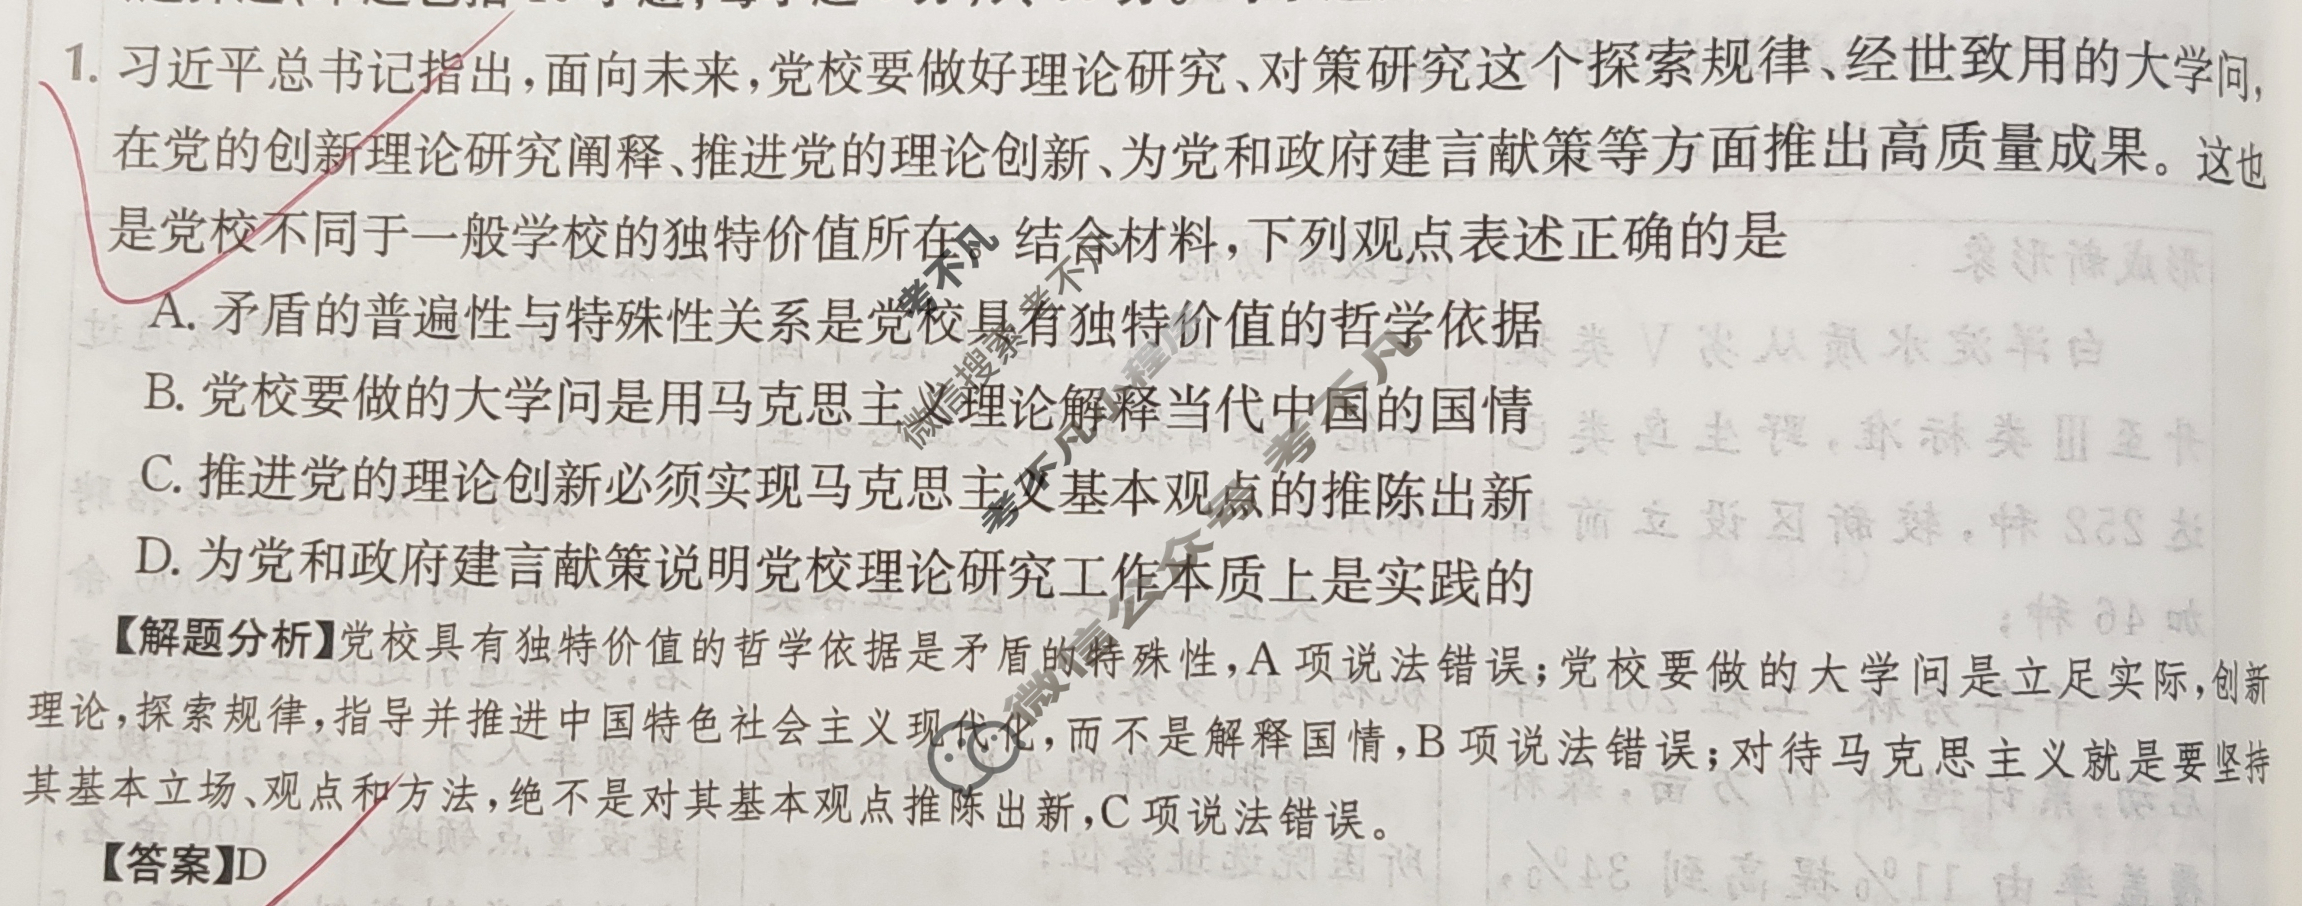 1. 习近平总书记指出，面向未来，党校要做好理论研究、对策研究这个探索规律、经世致用的大学问，
在党的创新理论研究阐释、推进党的理论创新、为党和政府建言献策等方面推出高质量成果。这也
是党校不同于一般学校的独特价值所在。结合材料，下列观点表述正确的是
A. 矛盾的普遍性与特殊性关系是党校具有独特价值的哲学依据
B. 党校要做的大学问是用马克思主义理论解释当代中国的国情
C. 推进党的理论创新必须实现马克思主义基本观点的推陈出新
D. 为党和政府建言献策说明党校理论研究工作本质上是实践的
【解题分析】党校具有独特价值的哲学依据是矛盾的特殊性，A 项说法错误；党校要做的大学问是立足实际，创新
理论，探索规律，指导并推进中国特色社会主义现代化，而不是解释国情，B 项说法错误；对待马克思主义就是要坚持
其基本立场、观点和方法，绝不是对其基本观点推陈出新，C 项说法错误。
【答案】D
考不凡
考不凡
微信搜索
考不凡小程序
考不凡
微信公众号